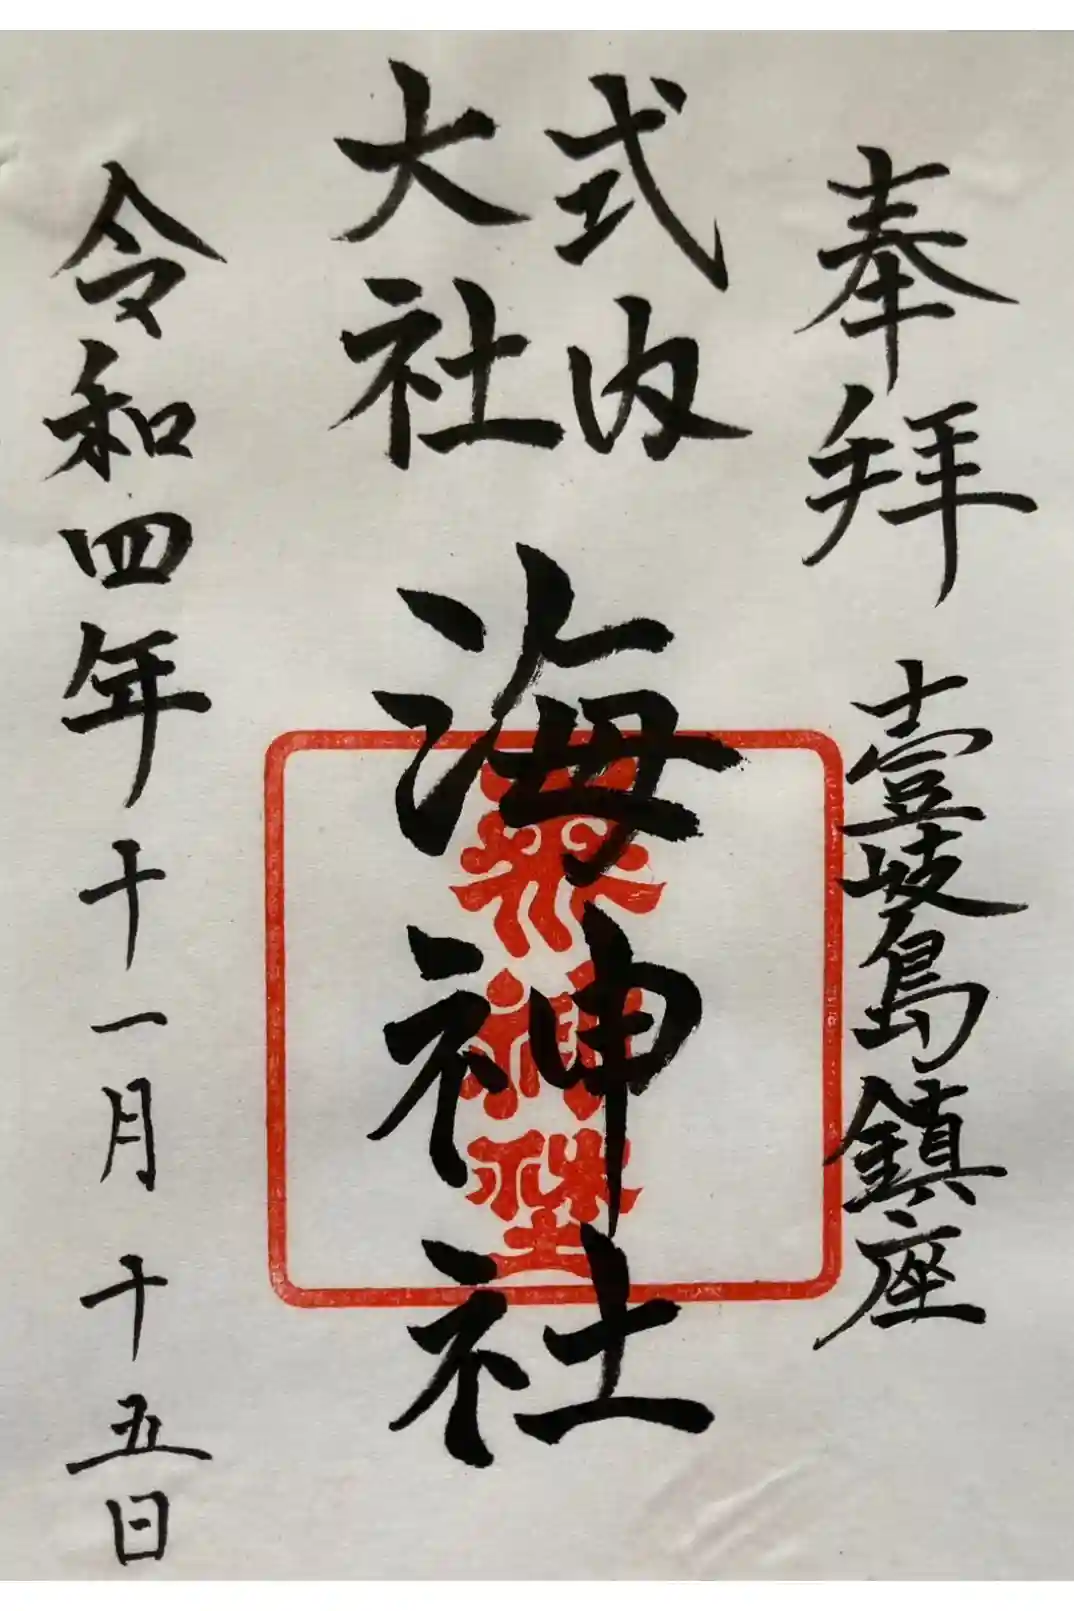 奉拝 壹岐島鎮座
式内
大社
海神社
令和四年十一月十五日